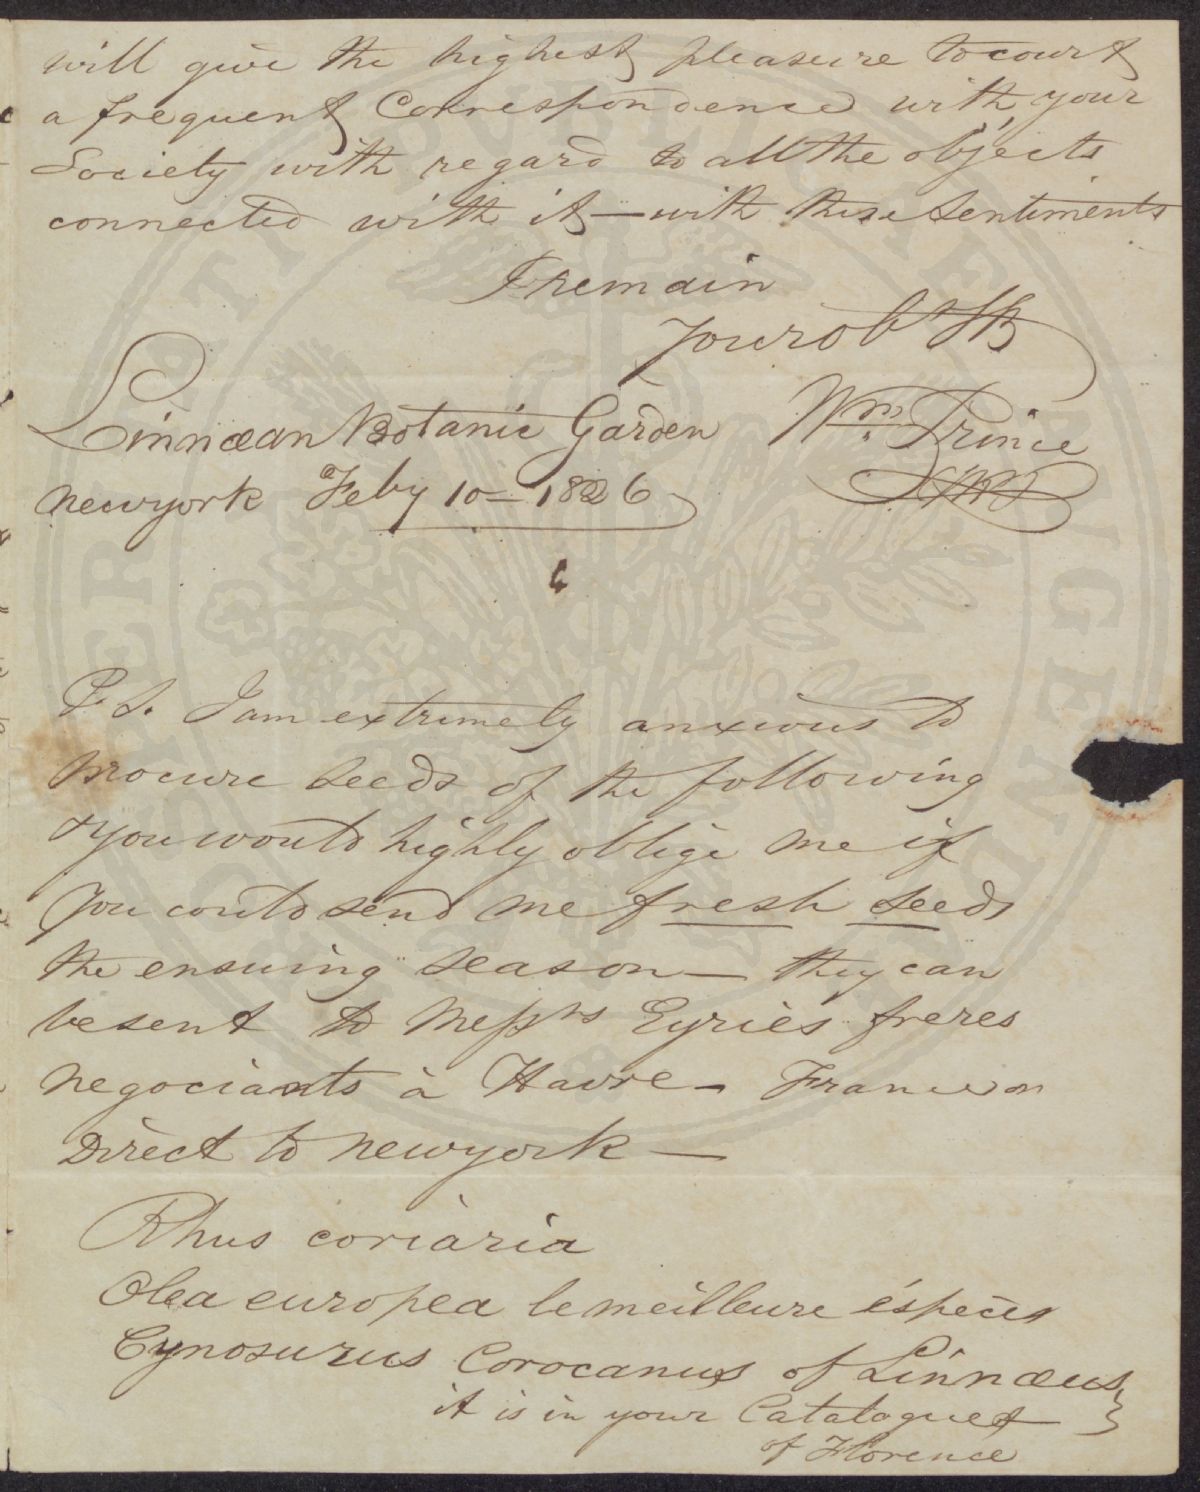 will give the highest pleasure to court
a frequent Correspondence with your
Society with regard to all the objects
connected with it — with these sentiments
I remain
your ob St
Linnæan Botanic Garden Wm. Prince
newyork Feby 10 — 1826
P.S. I am extremely anxious to
procure seeds of the following
& you would highly oblige me if
you could send me fresh seeds
the ensuing season — they can
be sent to Messrs Eyriés freres
negociants à Havre — France or
Direct to newyork —
Rhus coriaria
Olea europea le meilleure éspeces
Cynosurus Corocanus of Linnæus
it is in your Catalogue
of Florence